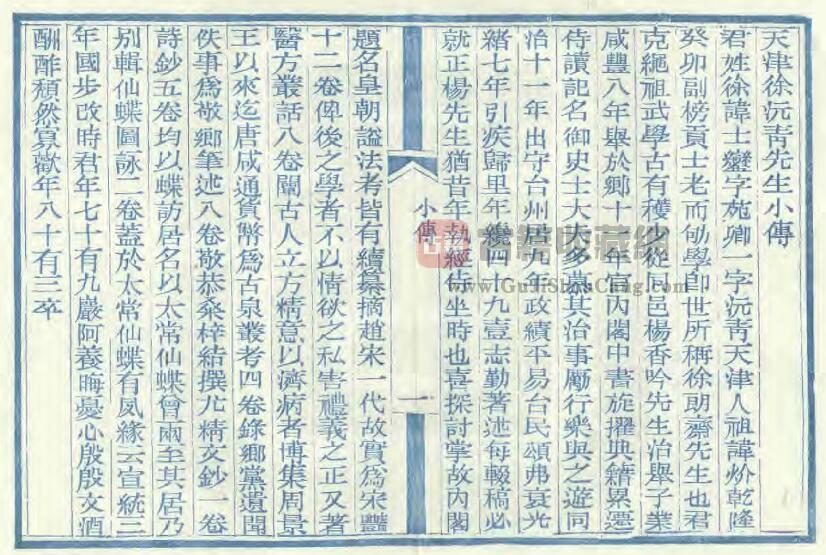 天津徐沅青先生小傳
君姓徐諱士鑾字苑卿一字沅青天津人祖諱炘乾隆
癸卯副榜貢士老而劬學即世所稱徐朗齋先生也君
克繩祖武學古有穫少從同邑楊香吟先生治舉子業
咸豐八年舉於鄉十一年官內閣中書旋擢典籍累遷
侍讀記名御史士大夫多慕其治事勵行樂與之遊同
治十一年出守台州居九年政績平易台民頌弗衰光
緒七年引疾歸里年纔四十九壹志勤著述每輟稿必
就正楊先生猶昔年執經侍坐時也喜探討掌故內閣
小傳
一
題名皇朝諡法考皆有續纂摘趙宋一代故實爲宋豔
十二卷俾後之學者不以情欲之私害禮義之正又著
醫方叢話八卷闡古人立方精意以濟病者博集周景
王以來迄唐咸通貨幣爲古泉叢考四卷錄鄉黨遺聞
佚事爲敬鄉筆述八卷敬恭桑梓結撰尤精文鈔一卷
詩鈔五卷均以蝶訪居名以太常仙蝶曾兩至其居乃
別輯仙蝶圖詠二卷蓋於太常仙蝶有夙緣云宣統三
年國步改時君年七十有九巖阿養晦憂心殷殷文酒
酬酢頹然寡歡年八十有三卒
www.GuJiShuCang.com